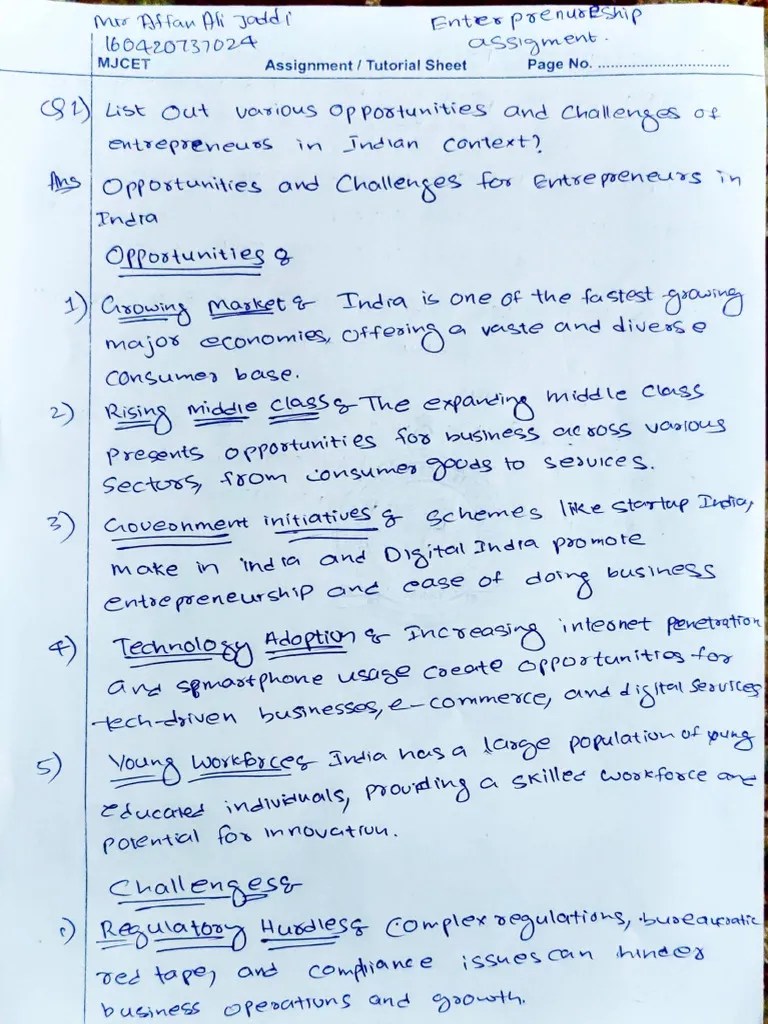 Mir Affan Ali Jaddi
Enterprenureship
160420737024
assigment.
MJCET Assignment / Tutorial Sheet Page No. ..............................
Q1) List Out various opportunities and challenges of
entrepreneurs in Indian context?
Ans Opportunities and Challenges for Entrepreneurs in
India
Opportunities :
1) Growing Market : India is one of the fastest growing
major economies, offering a vaste and diverse
consumer base.
2) Rising middle class : The expanding middle class
presents opportunities for business across various
sectors, from consumer goods to services.
3) Government initiatives : schemes like startup India,
make in india and Digital India promote
entrepreneurship and ease of doing business
4) Technology Adoption : Increasing internet penetration
and smartphone usage create opportunities for
tech-driven businesses, e-commerce, and digital services
5) Young Workforce : India has a large population of young
educated individuals, providing a skilled workforce and
potential for innovation.
Challenges :
1) Regulatory Hurdles : Complex regulations, bureaucratic
red tape, and compliance issues can hinder
business operations and growth.